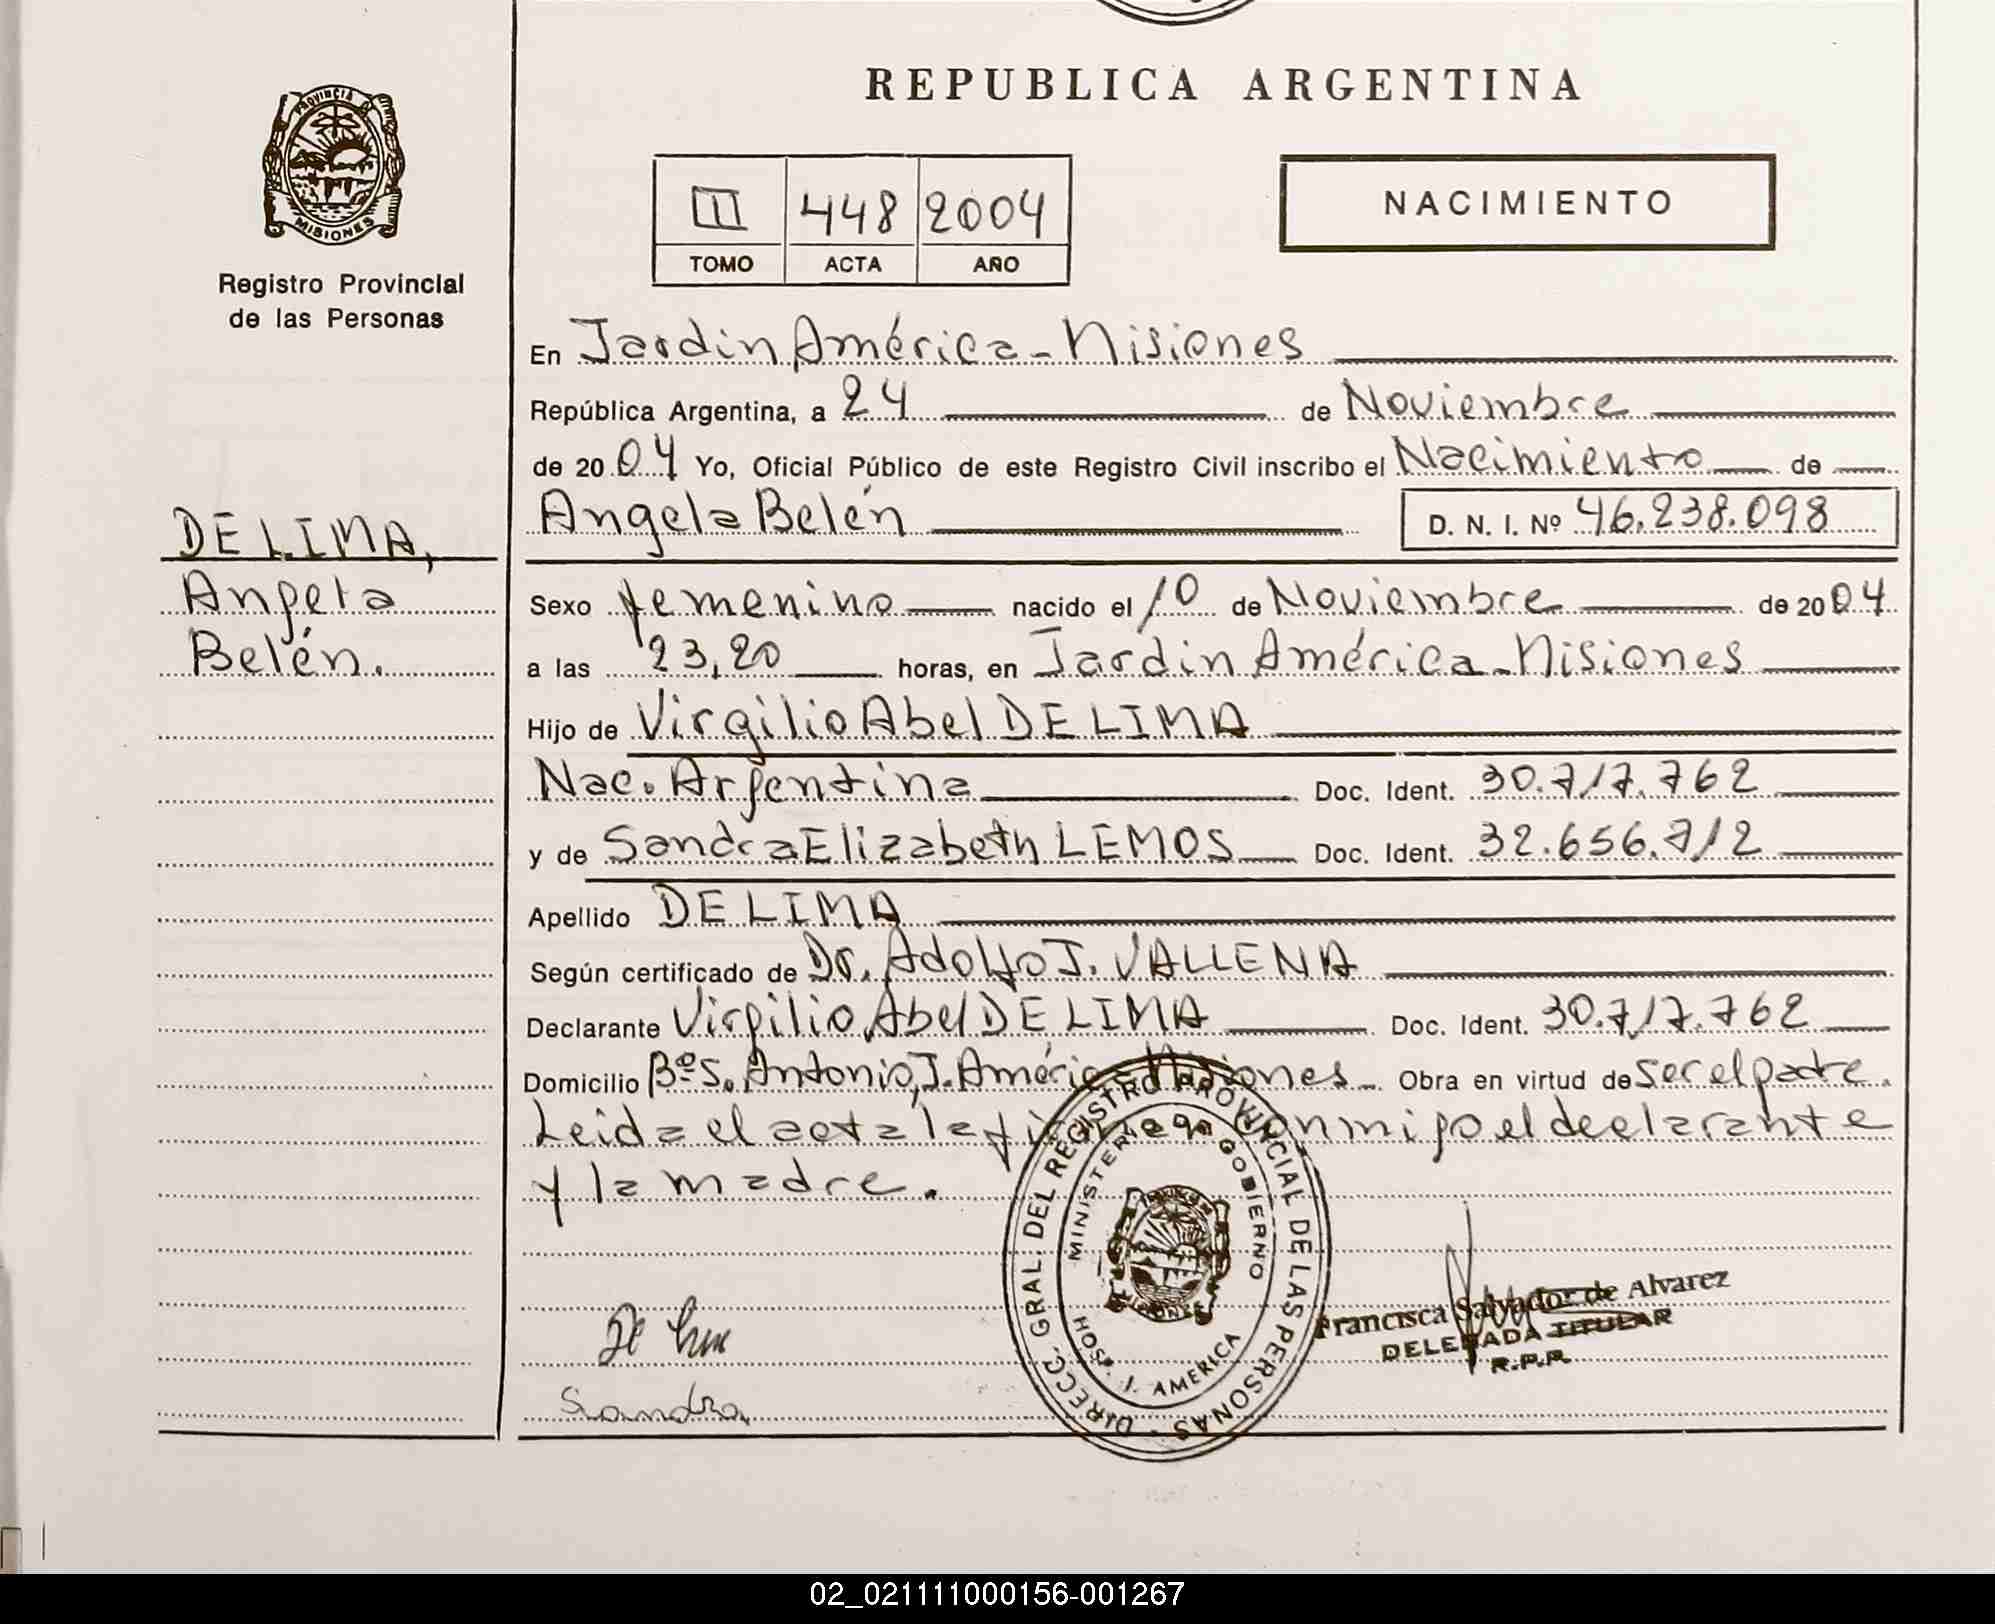 REPUBLICA ARGENTINA
PROVINCIA DE MISIONES
Registro Provincial
de las Personas
II 448 2004
TOMO ACTA AÑO
NACIMIENTO
En Jardin América - Misiones
República Argentina, a 24 de Noviembre
de 2004 Yo, Oficial Público de este Registro Civil inscribo el Nacimiento de
Angela Belén D. N. I. Nº 46.238.098
DE LIMA,
Angela
Belén.
Sexo femenino nacido el 10 de Noviembre de 2004
a las 23,20 horas, en Jardin América - Misiones
Hijo de Virgilio Abel DE LIMA
Nac. Argentina Doc. Ident. 30.717.762
y de Sandra Elizabeth LEMOS Doc. Ident. 32.656.712
Apellido DE LIMA
Según certificado de Dr. Adolfo J. VALLENA
Declarante Virgilio Abel DE LIMA Doc. Ident. 30.717.762
Domicilio Bº S. Antonio, J. América - Misiones Obra en virtud de ser el padre.
Leida el acta la firman conmigo el declarante
y la madre.
DIRECC. GRAL. DEL REGISTRO PROVINCIAL DE LAS PERSONAS
MINISTERIO DE GOBIERNO
HOSP. J. AMERICA
Francisca Salvador de Alvarez
DELEGADA TITULAR
R.P.P.
De Lima
Sandra
02_021111000156-001267